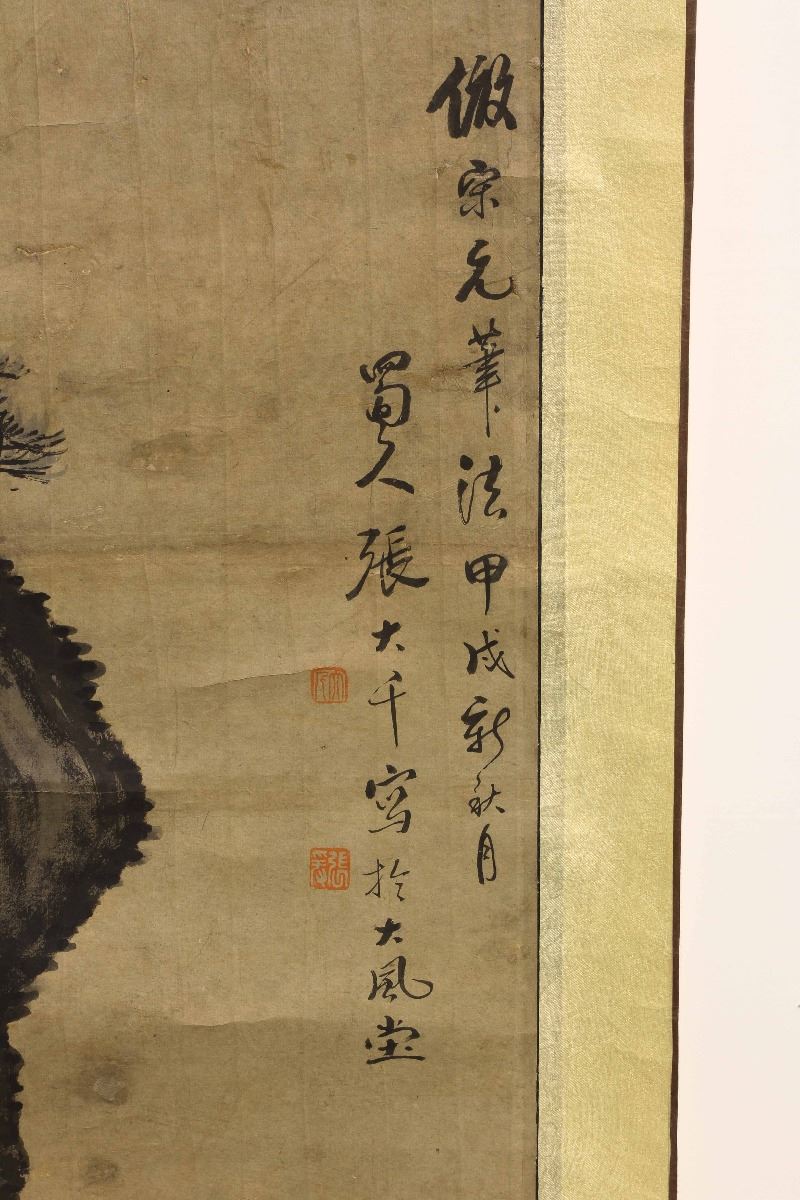 倣宋元筆法甲戌新秋月
蜀人張大千寫於大風堂